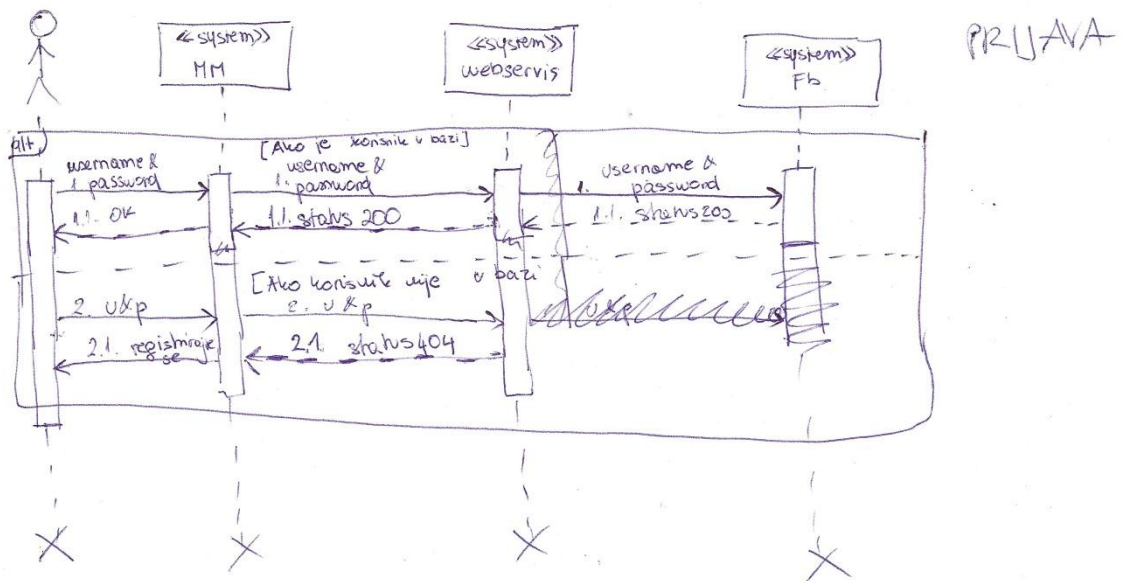 PRIJAVA
<<system>>
MM
<<system>>
webservis
<<system>>
Fb
alt
[Ako je korisnik u bazi]
username &
1. password
username &
1. password
username &
1. password
1.1. OK
1.1. status 200
1.1. status 200
[Ako korisnik nije u bazi
2. u&p
2. u&p
2.1. registriraj
se
2.1. status 404